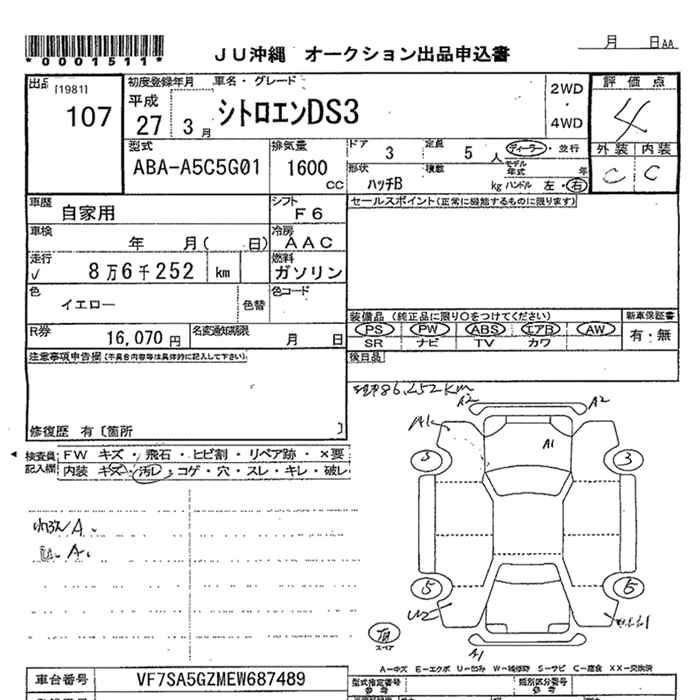 *0001511*
JU沖縄 オークション出品申込書
月 日AA
出品 [1981]
107
初度登録年月
車名・グレード
平成
27 3月
シトロエンDS3
2WD
・
4WD
評価点
4
外装 内装
C C
型式
ABA-A5C5G01
排気量
1600
CC
ドア 3
定員 5 人
ディーラー・並行
モデル年式 年
形状 ハッチB
積数 kg
ハンドル 左・右
車歴
自家用
シフト
F6
セールスポイント(正常に機能するものに限ります)
車検
年 月( 日)
冷房
AAC
走行
√ 8万6千252 km
燃料
ガソリン
色
イエロー
色替
色コード
装備品 (純正品に限り○をつけてください)
新車保証書
PS PW ABS エアB AW
SR ナビ TV カワ
有・無
R券
16,070円
名変通知期限
月 日
後日品
注意事項申告欄(不具合内容等は具体的に記入して下さい)
修復歴 有〔箇所 〕
86,252km
検査員記入欄
FW キズ・飛石・ヒビ割・リペア跡・×要
内装 キズ・汚レ・コゲ・穴・スレ・キレ・破レ
A2 A2
A1
A1
3 3
5 5
A1
頂
スペア
A-キズ E-エクボ U-凹み W-補修跡 S-サビ C-腐食 XX-交換済
車台番号
VF7SA5GZMEW687489
型式指定番号
参考
類別区分番号
参考